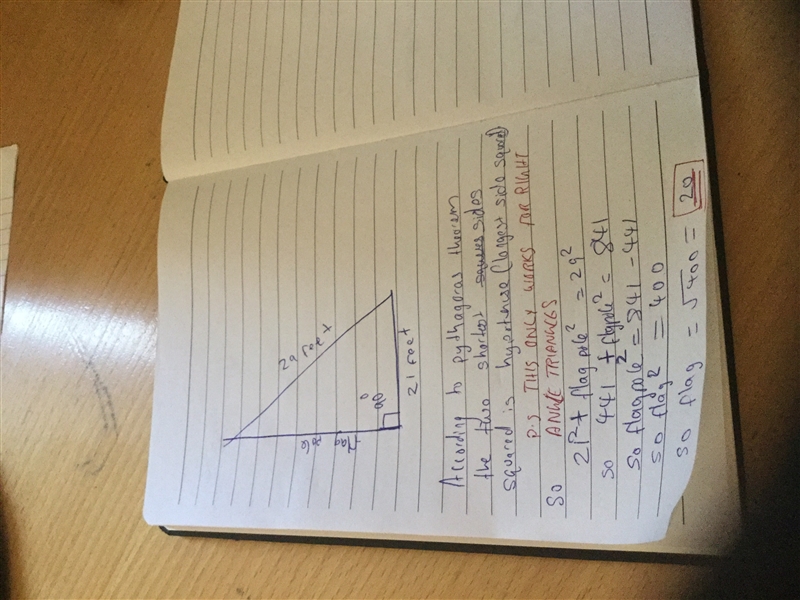 29 feet
flag pole
90°
21 feet
According to pythagoras theorem
the two shortest squares sides
squared is hypotenuse (largest side squared)
P.S THIS ONLY WORKS FOR RIGHT
ANGLE TRIANGLES
so
21² + flag pole² = 29²
so 441 + flagpole² = 841
so flagpole² = 841 - 441
so flag² = 400
so flag = √400 = 20